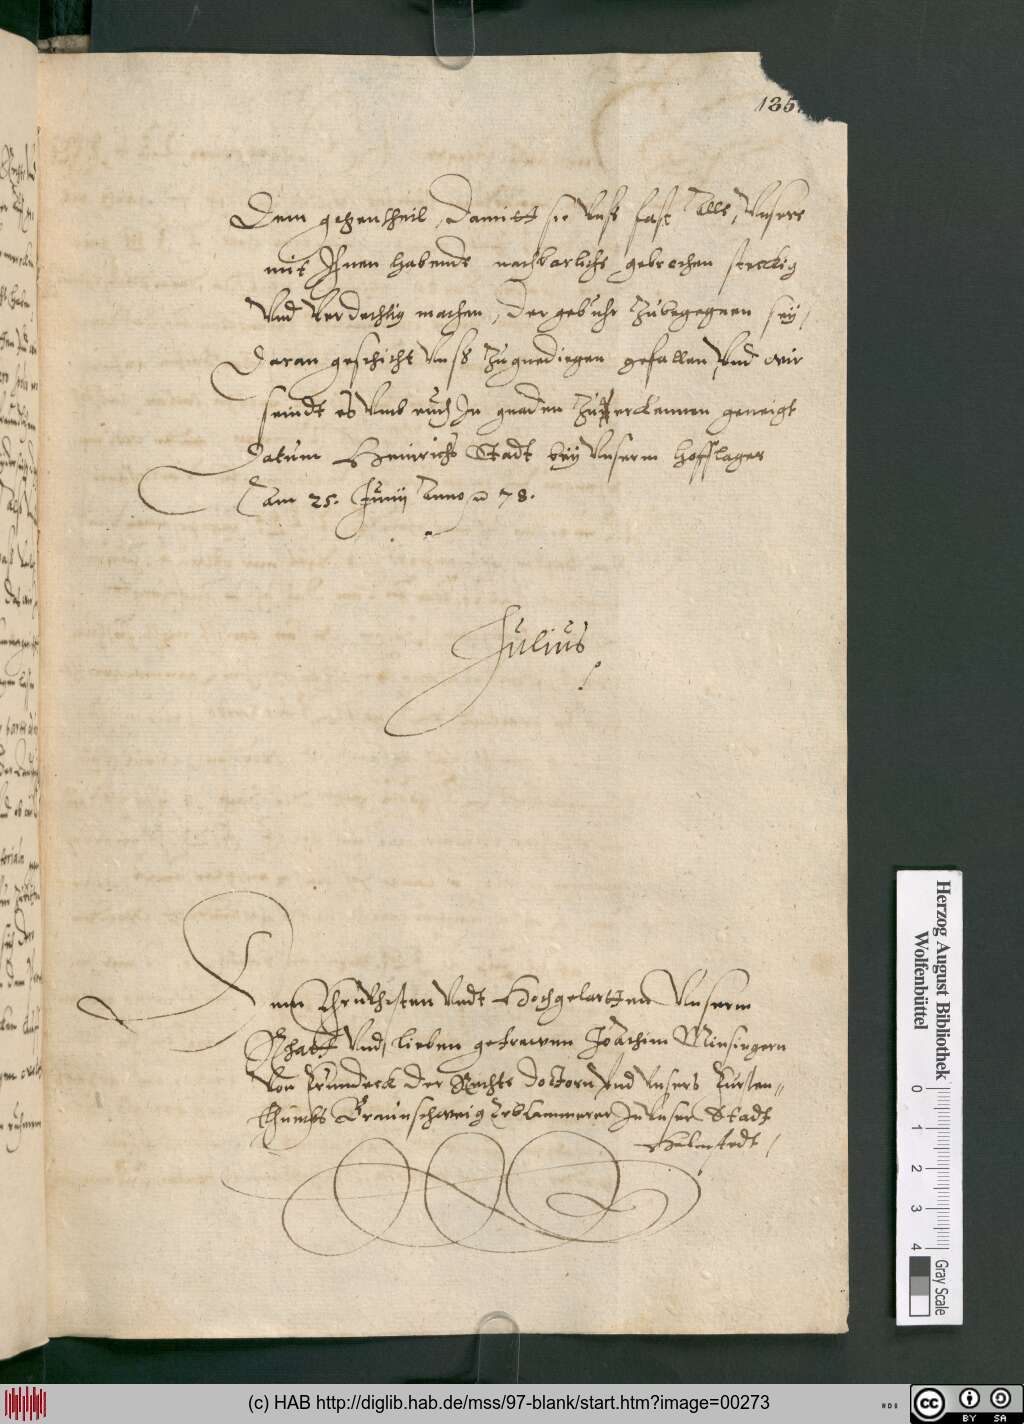 135
Dem gegentheil, damitt sie Unß fast alle, Unsere
mit Ihnen habende nachbarliche gebrechen streckig
Und Verdechtig machen, der gebuhr zubegegnen sey,
Daran geschicht Unß zugnedigen gefallen, Und wir
seindt es Umb euch In gnaden zu erkennen geneigt
Datum Heinrichs Stadt bey Unserm Hofflager
Am 25. Junij Anno 78.
Julius
Dem Unserm
Rhatt Und, lieben getrewen Joachim Minsingern
Von Frundeck der Rechte doctorn Und Unsers Fursten-
thumbs Braunschweig Erbkammerer In Unser Stadt
Helmstedt
Herzog August Bibliothek
Wolfenbüttel
0 1 2 3 4
Gray Scale
(c) HAB http://diglib.hab.de/mss/97-blank/start.htm?image=00273
cc BY SA